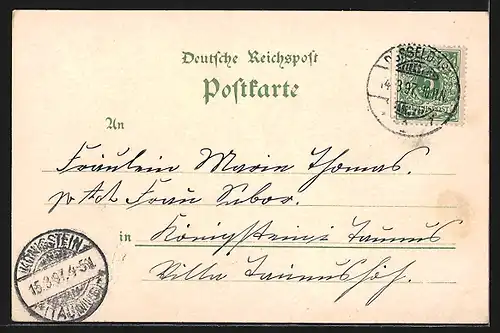 Deutsche Reichspost
Postkarte
DÜSSELDORF
14.3.97
An
Fräulein Marie Thomas.
Frau
in Königstein i Taunus
Villa Taunushöh.
KÖNIGSTEIN
15.3.97. 4-5N.
(TAUNUS)